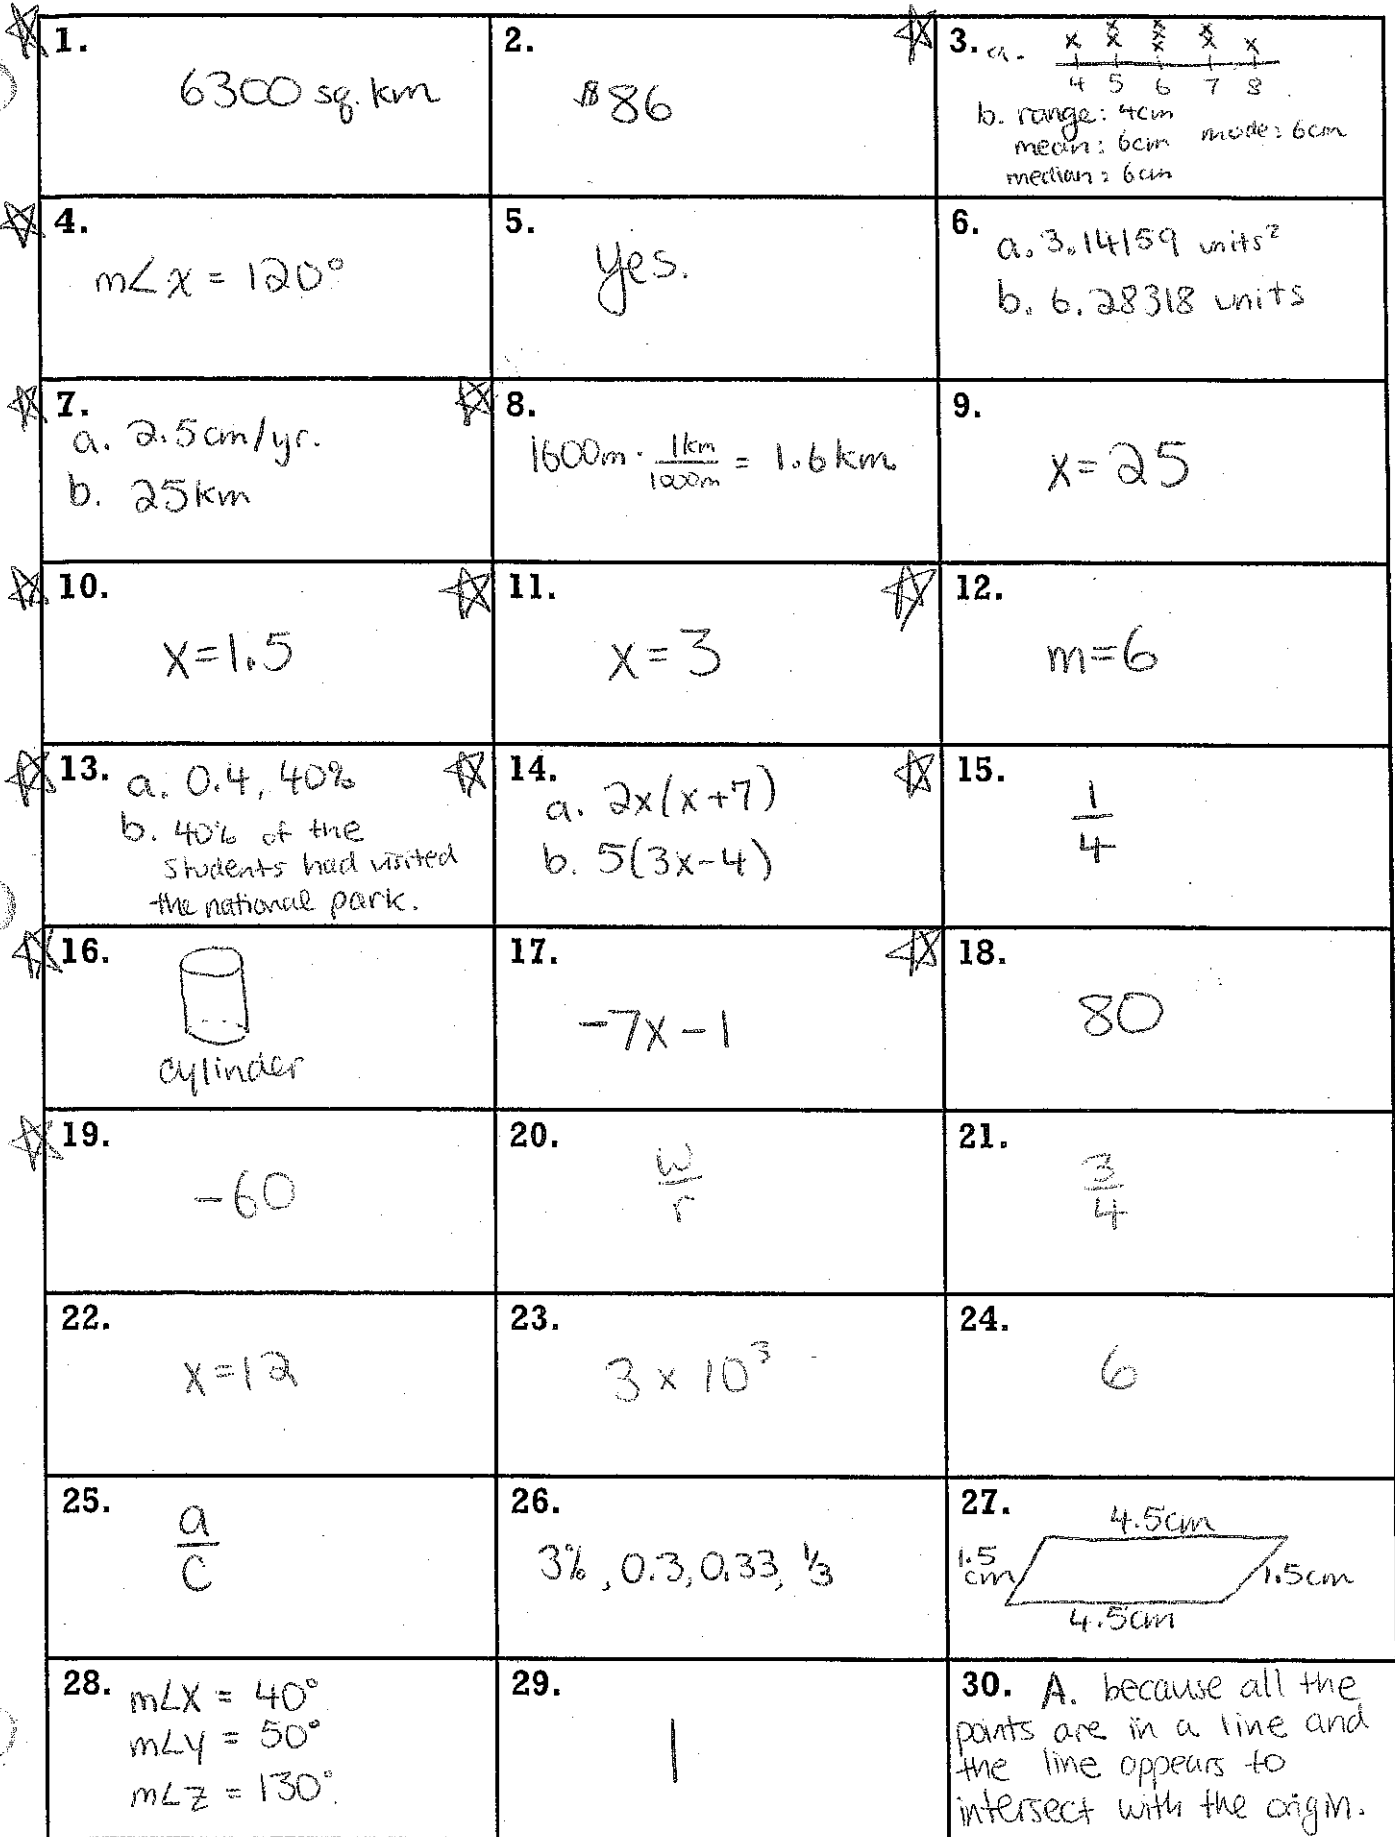 1.
6300 sq. km
2.
$86
3. a.
x x x x x x x x x
4 5 6 7 8
b. range: 4cm
mean: 6cm mode: 6cm
median: 6cm
4.
m∠x = 120°
5.
yes.
6.
a. 3.14159 units²
b. 6.28318 units
7.
a. 2.5cm/yr.
b. 25km
8.
1600m · 1km/1000m = 1.6km
9.
x=25
10.
x=1.5
11.
x=3
12.
m=6
13. a. 0.4, 40%
b. 40% of the
students had visited
the national park.
14.
a. 2x(x+7)
b. 5(3x-4)
15.
1/4
16.
cylinder
17.
-7x-1
18.
80
19.
-60
20.
w/r
21.
3/4
22.
x=12
23.
3 x 10³
24.
6
25.
a/c
26.
3%, 0.3, 0.33, 1/3
27.
4.5cm
1.5
cm
1.5cm
4.5cm
28. m∠X = 40°
m∠y = 50°
m∠z = 130°.
29.
1
30. A. because all the
points are in a line and
the line appears to
intersect with the origin.